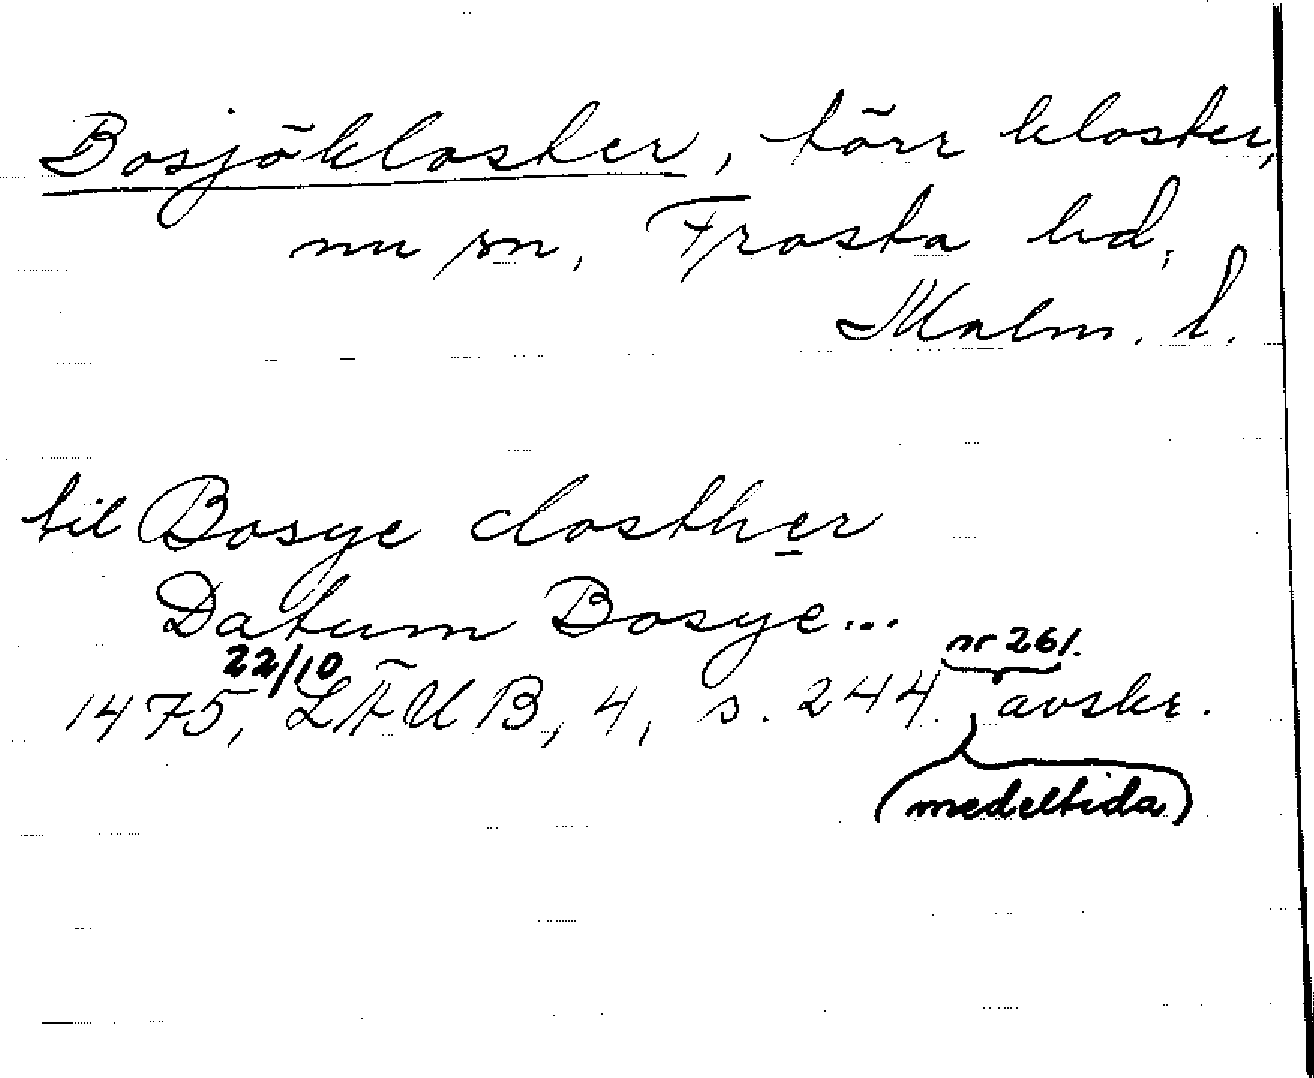 Bosjökloster, förr kloster,
nu sn, Frosta hd,
Malm. l.
til Bosye closther
Datum Bosye...
1475, 22/10 LÄUB, 4, s. 244. nr 261. avskr.
(medeltida)